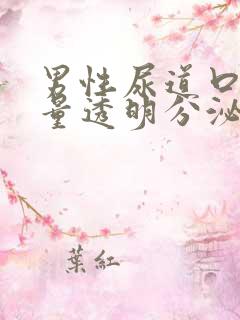 男性尿道口
量透明分泌
葉紅